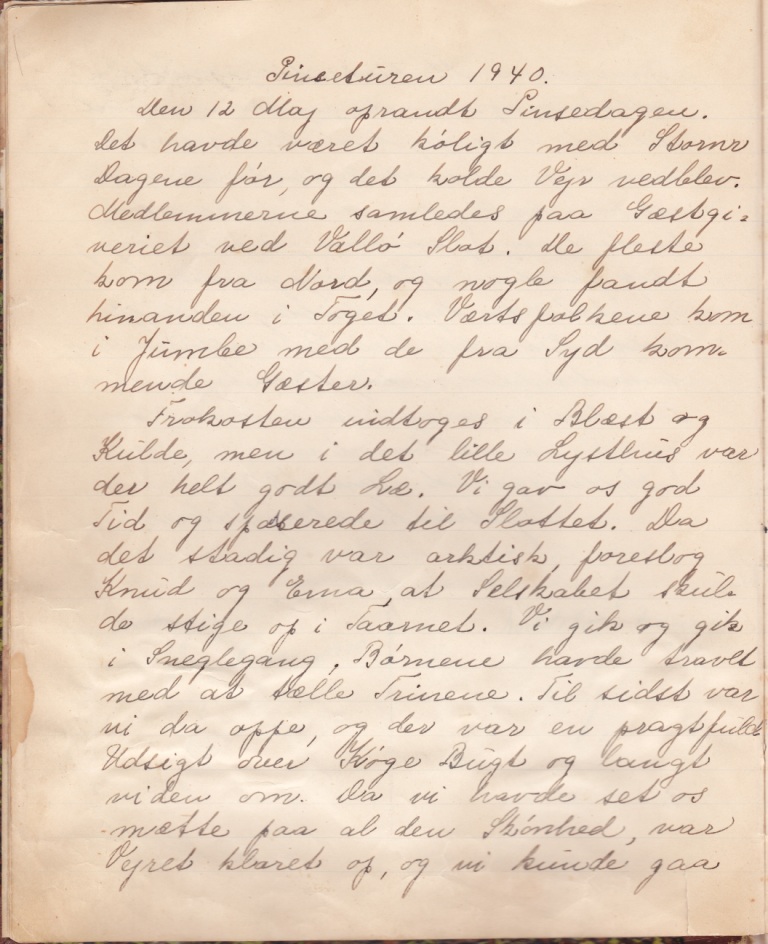 Pinseturen 1940.
Den 12 Maj oprandt Pinsedagen.
Det havde været køligt med Storm
Dagene før, og det kolde Vejr vedblev.
Medlemmerne samledes paa Gæstgi=
veriet ved Vallø Slot. De fleste
kom fra Nord, og nogle fandt
hinanden i Toget. Værtsfolkene kom
i Jumbe med de fra Syd kom-
mende Gæster.
Frokosten indtoges i Blæst og
Kulde, men i det lille Lysthus var
der helt godt Læ. Vi gav os god
Tid og spaserede til Slottet. Da
det stadig var arktisk, foreslog
Knud og Erna, at Selskabet skul-
de stige op i Taarnet. Vi gik og gik
i Sneglegang, Børnene havde travlt
med at tælle Trinene. Til sidst var
vi da oppe, og der var en pragtfuld
Udsigt over Køge Bugt og langt
viden om. Da vi havde set os
mætte paa al den Skønhed, var
Vejret klaret op, og vi kunde gaa